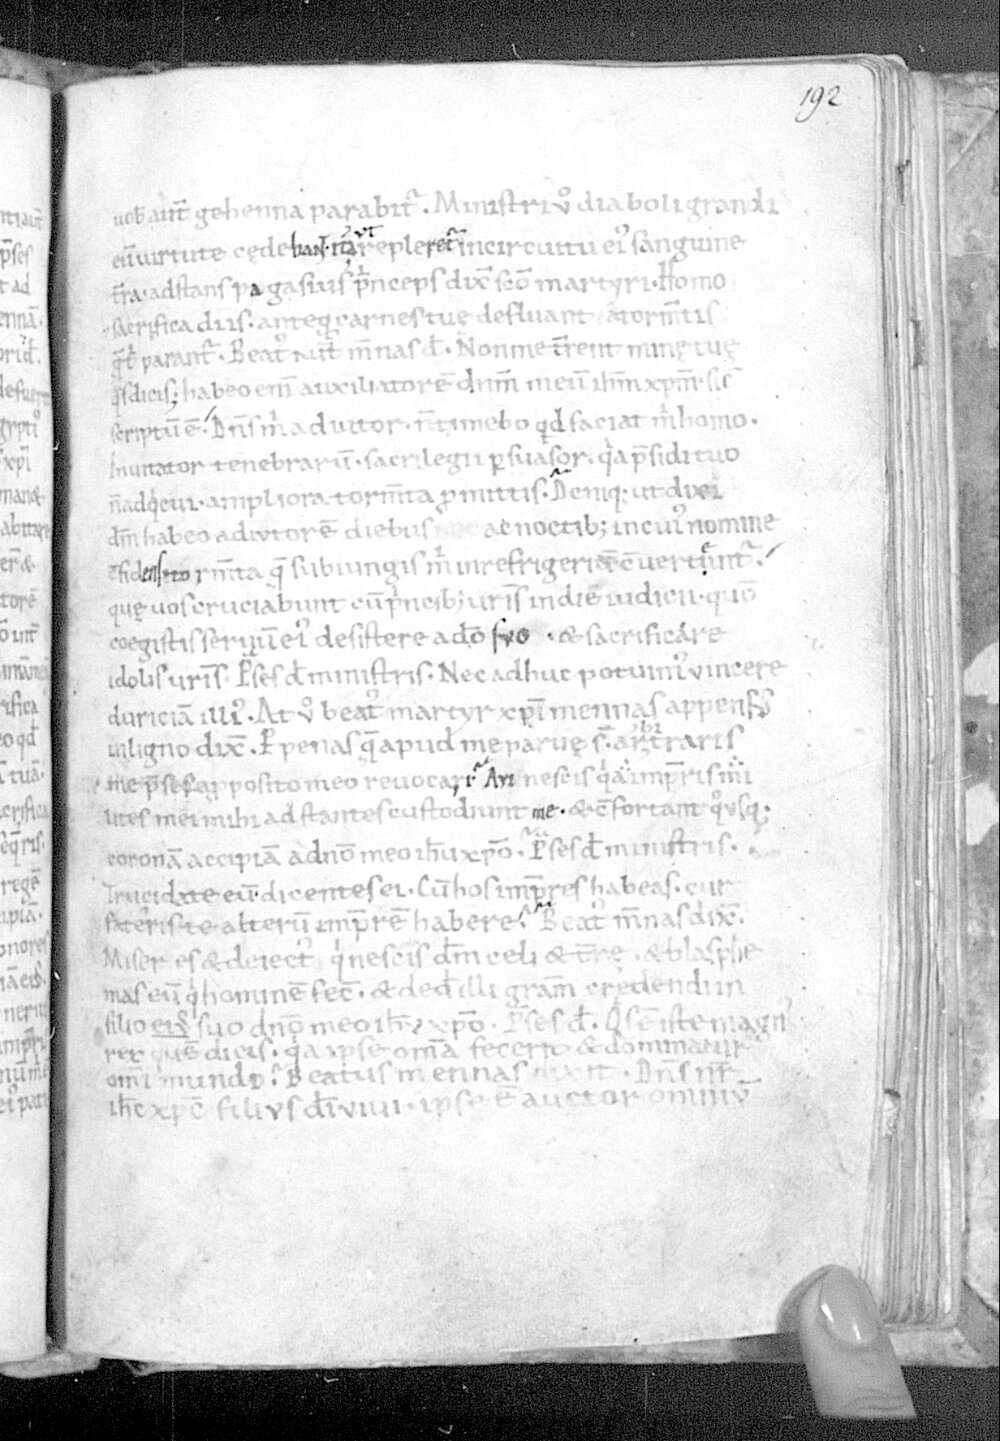 192
uob aut̄ gehenna parabit̄. Ministri v̊ diaboli grandi
eū virtute cędebant. ita ut replęret̄ in circuitu ei' sanguine
t̄ra. adstans pagasius p̄nceps dix̄ sc̄o martyri. Homo
sacrifica diis. anteq̄ carnes tuę defluant a torm̄tis
q̄ t̄ parant̄. Beat' aut̄ m̄nas d̄. Non me t̄rent minę tuę
q̄s dicis; habeo eni auxiliatorē dn̄m meū ih̄m xp̄m. sic̄
scriptū ē. Dn̄s m̄ adiutor. n̄ timebo qd̄ faciat m̄ homo.
Inuitator tenebrarū. sacrilegii p̱suasor. q̄a p̄sidi tuo
n̄ adq̄eui. ampliora torm̄ta p̱mittis. Deniq; ut dixi
dm̄ habeo adiutorē diebus ac noctib; in cui' nomine
c̄fidens torm̄ta q̄ subiungis m̄ in refrigeriū c̄uertunt̄.
quę uos cruciabunt cū p̄ncib; uris in diē iudicii. quō
coegistis seruū ei' desistere a dō suo. & sacrificare
idolis uris. P̄ses d̄ ministris. Nec adhuc potuim' vincere
duriciā illi'. At v̊ beat' martyr xp̄i mennas appensus
in ligno dix̄. P̱ penas q̄ apud me paruę s̄. arbitraris
me p̄ses a p̱posito meo reuocari. An nescis q̄a imp̄ris mi
lites mei mihi adstantes custodiunt me. & c̄fortant q̊usq;
coronā accipiā a dn̄o meo ih̄u xp̄o. P̄ses d̄ ministris.
Trucidate eū. dicentes ei. Cū hos imp̄res habeas. cur
fateris te alterū imp̄rē habere. Beat' m̄nas dix̄.
Miser es & deiect'. q̄ nescis dm̄ celi & t̄rę. & blasphe
mas eū q̄ hominē fec̄. & ded̄ illi grām credendi in
filio eius suo dn̄o meo ih̄u xp̄o. P̄ses d̄. Q̄s ē iste magn'
rex quē dicis. q̄a ipse om̄a fecerit & dominatur
om̄i mundo. Beatus mennas dixit. Dn̄s nr̄
ih̄c xp̄c filius dī viui. ipse ē auctor omniū